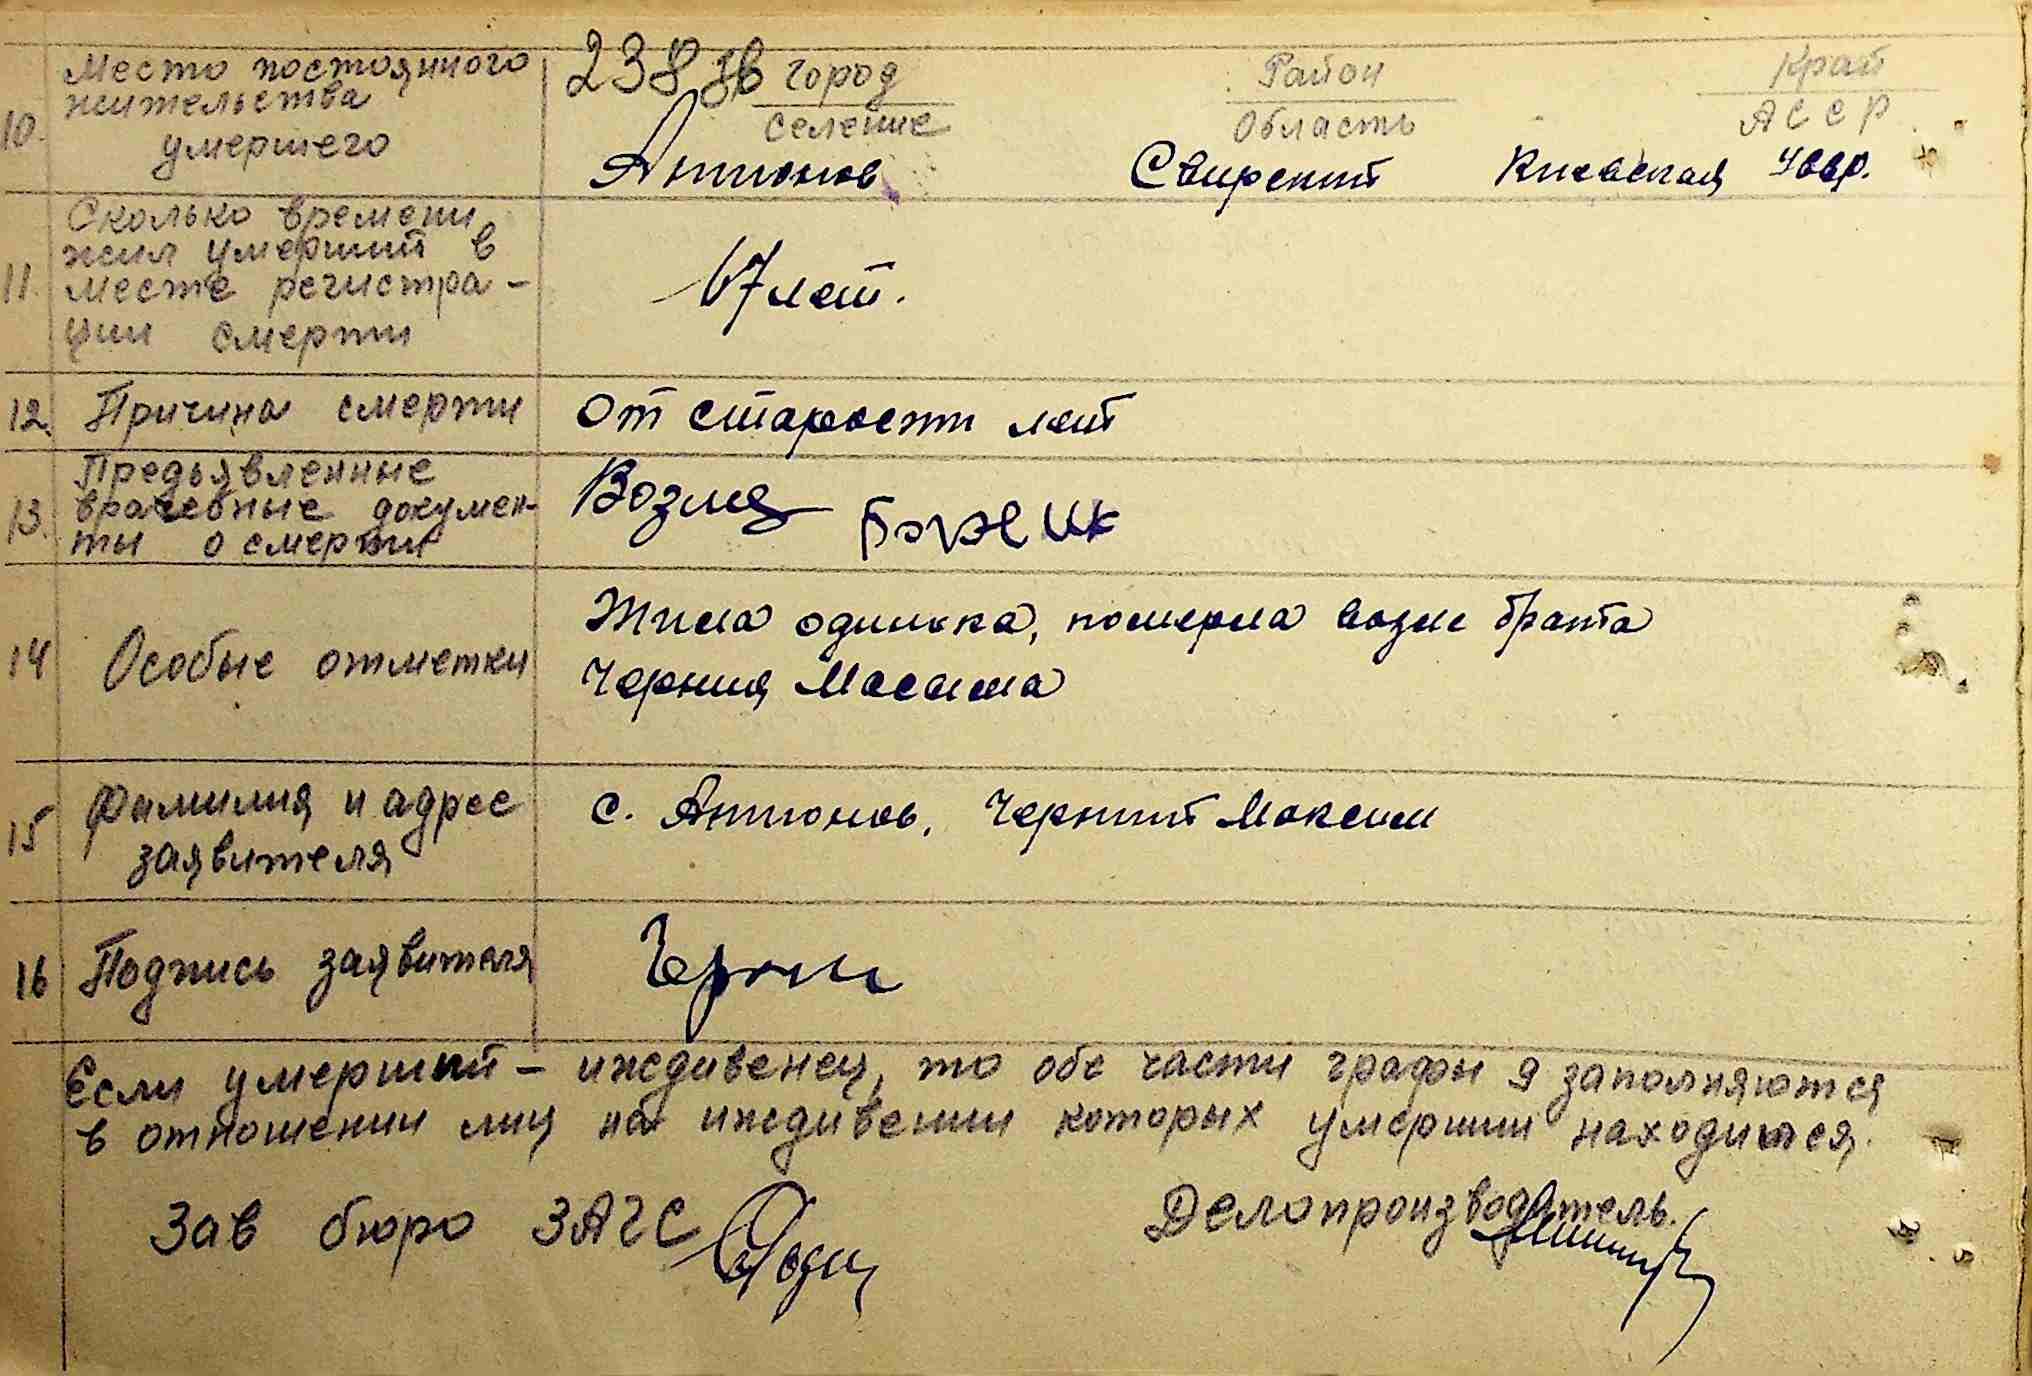 10. Место постоянного
жительства
умершего
238 зв город
селение
Район
Область
Край
АССР
Антонов Свирский Киевская Уввр.
11. Сколько времени
жил умерший в
месте регистра-
ции смерти
67 лет.
12. Причина смерти от старости лет
13. Предъявленные
врачебные докумен-
ты о смерти
14 Особые отметки
Жила одинока, померла возле брата
Черния Максима
15 Фамилия и адрес
заявителя
с. Антонов, Черний Максим
16 Подпись заявителя Черний
Если умерший – иждивенец, то обе части графы 9 заполняются
в отношении лиц на иждивении которых умерший находился.
Зав бюро ЗАГС
Делопроизводитель.